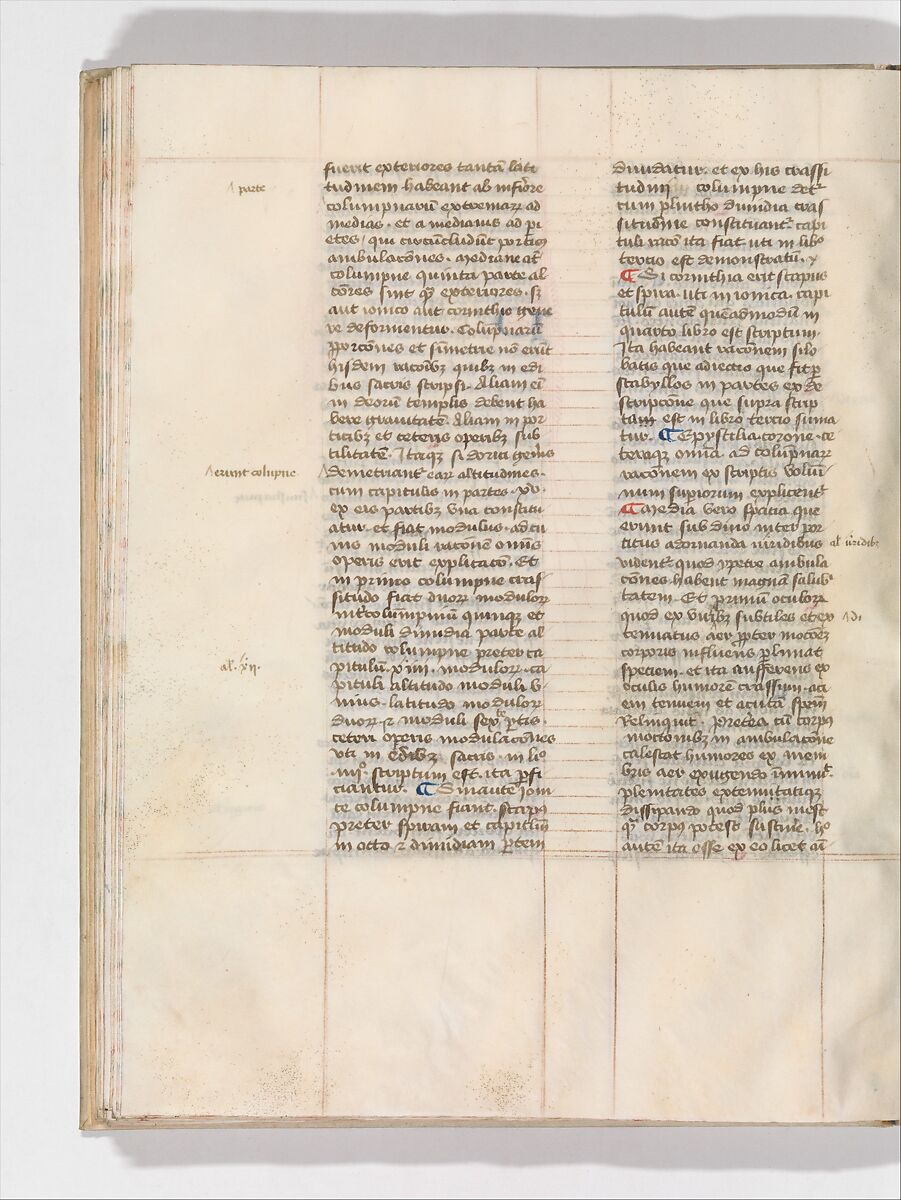 fuerit exteriores tantā lati
tudinem habeant ab inferiore
parte
columpnarū extremarꝝ ad
medias. et a medianis ad pa
etes, qui circūcludūt porticꝰ
ambulacōnes. Mediane at̄
columpne quinta parte al
tiores sint quā exteriores. sꝫ
aut ionico aut corinthio gene
re deformentur. Columpnarū
ꝓporcōnes et simetrie nō erūt
hisdem racōibꝫ quibꝫ in edi
bus sacris scripsi. Aliam ei
in deorū templis debent ha
bere grauitatē. Aliam in por
ticibꝫ et ceteris operibꝫ sub
tilitatē. Itaqꝫ si dorici generis
erunt columpne
demetriant̄ earꝝ altitudines.
cum capitulis in partes .xv.
ex eis partibꝫ vna constitu
atur. et fiat modulus. ad cu
ius moduli racōnē omnis
operis erit explicatō. Et
in primo columpne cras
situdo fiat duorꝝ modulorꝝ
int̄columpniū quinqꝫ et
moduli dimidia parte al
titudo columpne preter ca
al. xii.
pitulū .xiiii. modulorꝝ. ca
pituli altitudo moduli v
nius. latitudo modulorꝝ
duorꝝ ⁊ moduli sexte ꝑtis.
ceteri operis modulacōnes
vti in edibꝫ sacris in lio
.iiiiº. scriptum est. ita ꝑfi
ciantur. ¶ Sin autē ioni
ce columpne fiant. scapꝰ
preter spiram et capitlū
in octo ⁊ dimidiam ꝑtem
diuidatur. et ex his crassi
tudini columpne det̄
cum plintho dimidia cras
situdine constituant̄. capi
tuli racō ita fiat. uti in libº
tercio est demonstratū.
¶ Si corinthia erit scapus
et spira. uti in ionica. capi
tulū autē quēadmodū in
quarto libro est scriptum.
Ita habeant racōnem silo
batis que adiectio que fit ꝑ
scabyllos in partes ex de
scripcōne que supra scrip
tam est in libro tercio suma
tur. ¶ Epystilia. corone. ce
teraqꝫ omīa. ad columpnarꝝ
racōnem ex scriptis volūi
num supiorum explicent̄
¶ Media vero spacia que
erunt sub diuo inter por
ticus adornanda uiridibus
al' uiridib;
vident̄. quod ypetre ambula
cōnes habent magnā salub
tatem. Et primū oculorꝝ
quod ex viribꝫ subtiles et ex
tenuatus aer ꝓpter motōeꝫ
corporis influens ꝑlimat
speciem. et ita aufferens ex
oculis humorē crassum. aci
em tenuem et acutā spēm
relinquit. Preterea cū corpꝰ
motionibꝫ in ambulacōne
calescat humores ex mem
bris aer exugendo inminuit
plenitates extenuatqꝫ
dissipando quod plus inest
quā corpꝰ potest sustinere. hº
autē ita esse ex eo licet aī